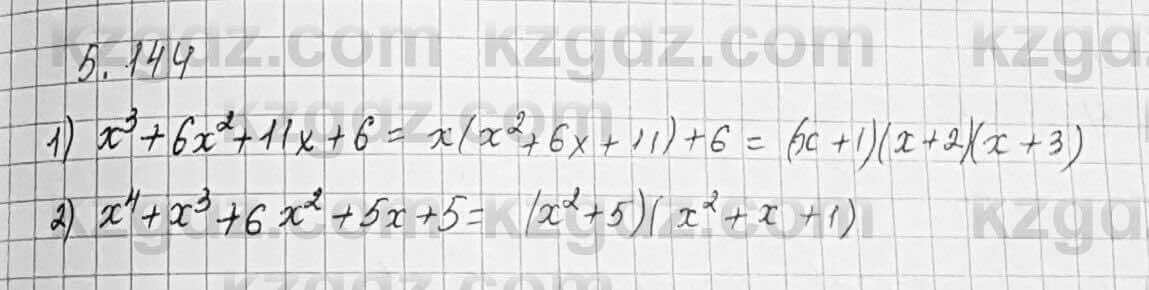 kzgdz.com kzgdz.com kzgd
5.144
1) x³+6x²+11x+6 = x(x²+6x+11)+6 = (x+1)(x+2)(x+3)
2) x⁴+x³+6x²+5x+5 = (x²+5)(x²+x+1)